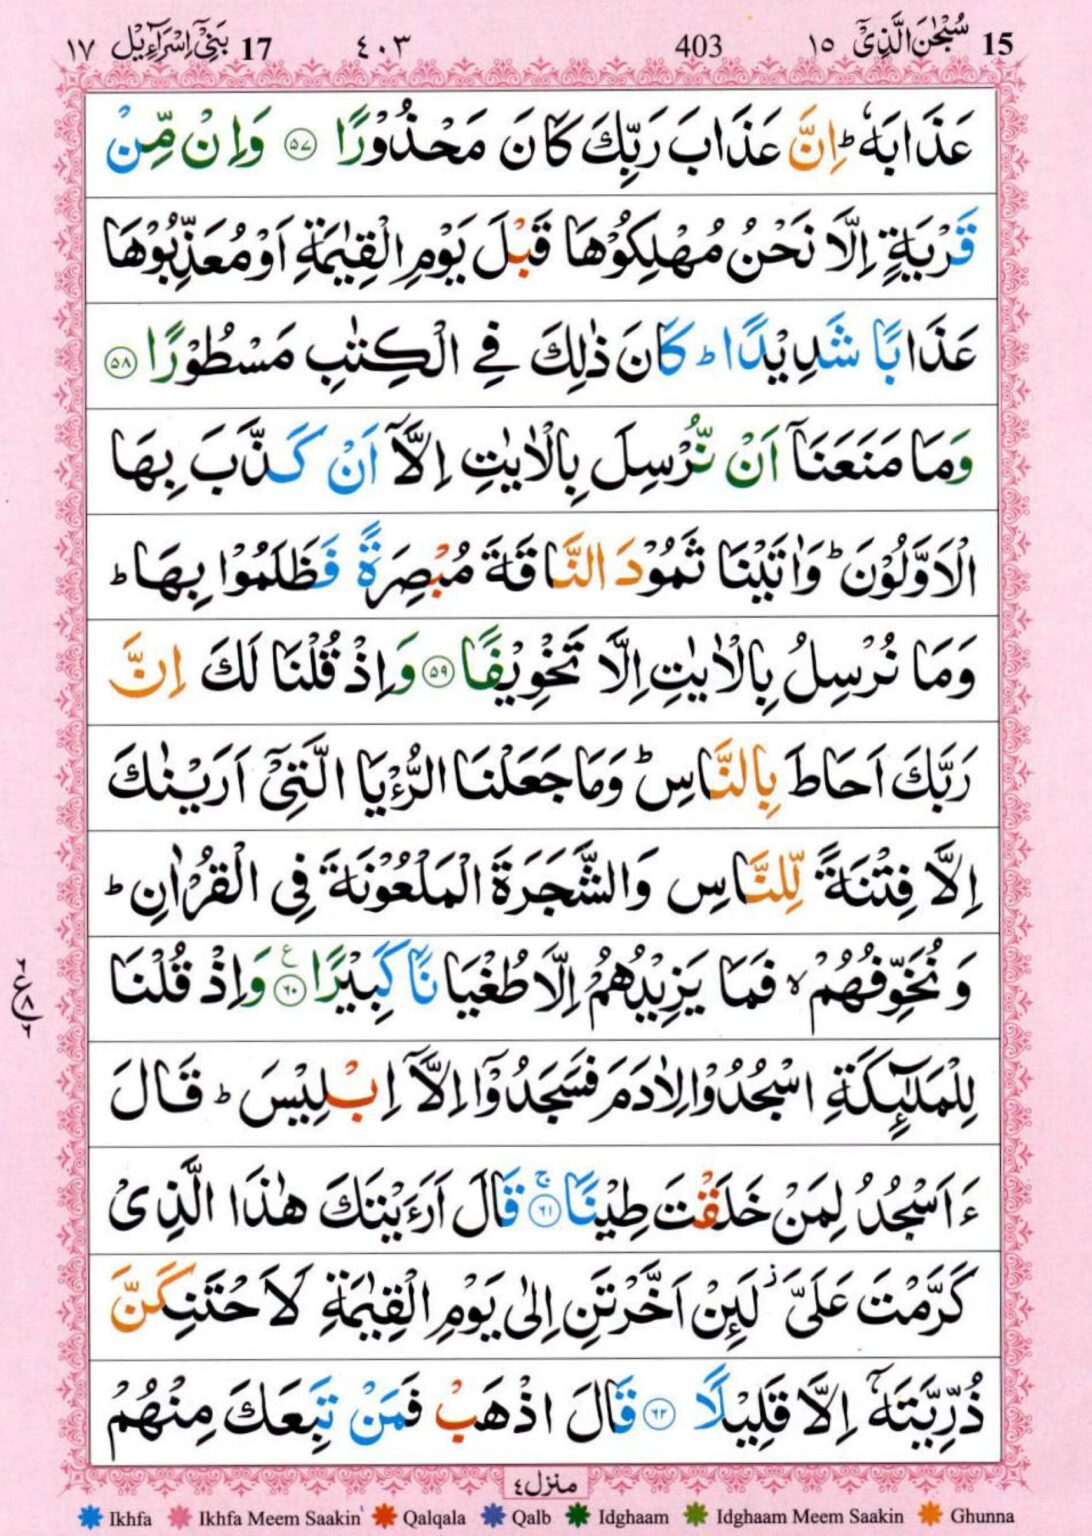 15 سُبْحٰنَ الَّذِیْۤ ١٥ 403 ٤٠٣ 17 بَنِیْۤ اِسْرَآءِیْل ١٧
عَذَابَهٗ ؕ اِنَّ عَذَابَ رَبِّكَ كَانَ مَحْذُوْرًا ۝٥٧ وَاِنْ مِّنْ
قَرْیَةٍ اِلَّا نَحْنُ مُهْلِكُوْهَا قَبْلَ یَوْمِ الْقِیٰمَةِ اَوْ مُعَذِّبُوْهَا
عَذَابًا شَدِیْدًا ؕ كَانَ ذٰلِكَ فِی الْكِتٰبِ مَسْطُوْرًا ۝٥٨
وَمَا مَنَعَنَاۤ اَنْ نُّرْسِلَ بِالْاٰیٰتِ اِلَّاۤ اَنْ كَذَّبَ بِهَا
الْاَوَّلُوْنَ ؕ وَاٰتَیْنَا ثَمُوْدَ النَّاقَةَ مُبْصِرَةً فَظَلَمُوْا بِهَا ؕ
وَمَا نُرْسِلُ بِالْاٰیٰتِ اِلَّا تَخْوِیْفًا ۝٥٩ وَاِذْ قُلْنَا لَكَ اِنَّ
رَبَّكَ اَحَاطَ بِالنَّاسِ ؕ وَمَا جَعَلْنَا الرُّءْیَا الَّتِیْۤ اَرَیْنٰكَ
اِلَّا فِتْنَةً لِّلنَّاسِ وَالشَّجَرَةَ الْمَلْعُوْنَةَ فِی الْقُرْاٰنِ ؕ
وَنُخَوِّفُهُمْ ۙ فَمَا یَزِیْدُهُمْ اِلَّا طُغْیَانًا كَبِیْرًا ۝٦٠ ع وَاِذْ قُلْنَا
لِلْمَلٰٓئِكَةِ اسْجُدُوْا لِاٰدَمَ فَسَجَدُوْۤا اِلَّاۤ اِبْلِیْسَ ؕ قَالَ
ءَاَسْجُدُ لِمَنْ خَلَقْتَ طِیْنًا ۝٦١ ۚ قَالَ اَرَءَیْتَكَ هٰذَا الَّذِیْ
كَرَّمْتَ عَلَیَّ ؗ لَىِٕنْ اَخَّرْتَنِ اِلٰی یَوْمِ الْقِیٰمَةِ لَاَحْتَنِكَنَّ
ذُرِّیَّتَهٗۤ اِلَّا قَلِیْلًا ۝٦٢ قَالَ اذْهَبْ فَمَنْ تَبِعَكَ مِنْهُمْ
منزل ٤
Ikhfa Ikhfa Meem Saakin Qalqala Qalb Idghaam Idghaam Meem Saakin Ghunna